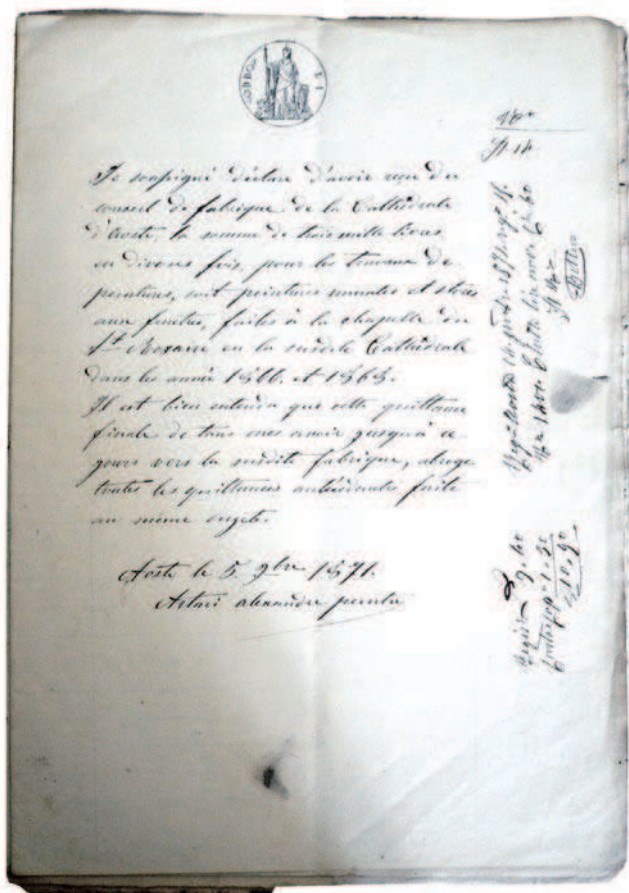 Je soussigné déclare d'avoir reçu du
conseil de fabrique de la Cathédrale
d'Aoste, la somme de trois mille livres
en diverses fois, pour les travaux de
peintures, soit peintures murales et stores
aux fenêtres, faites à la chapelle du
St Rosaire en la susdite Cathédrale
dans les année 1866. et 1868.
Il est bien entendu que cette quittance
finale de tous mes avoir jusqu'à ce
jours vers la susdite fabrique, abroge
toutes les quittances antécédentes faite
au même sujet.
Aoste le 5 9bre 1871.
Artari alexandre peintre
9. 60
1. 30
10. 90